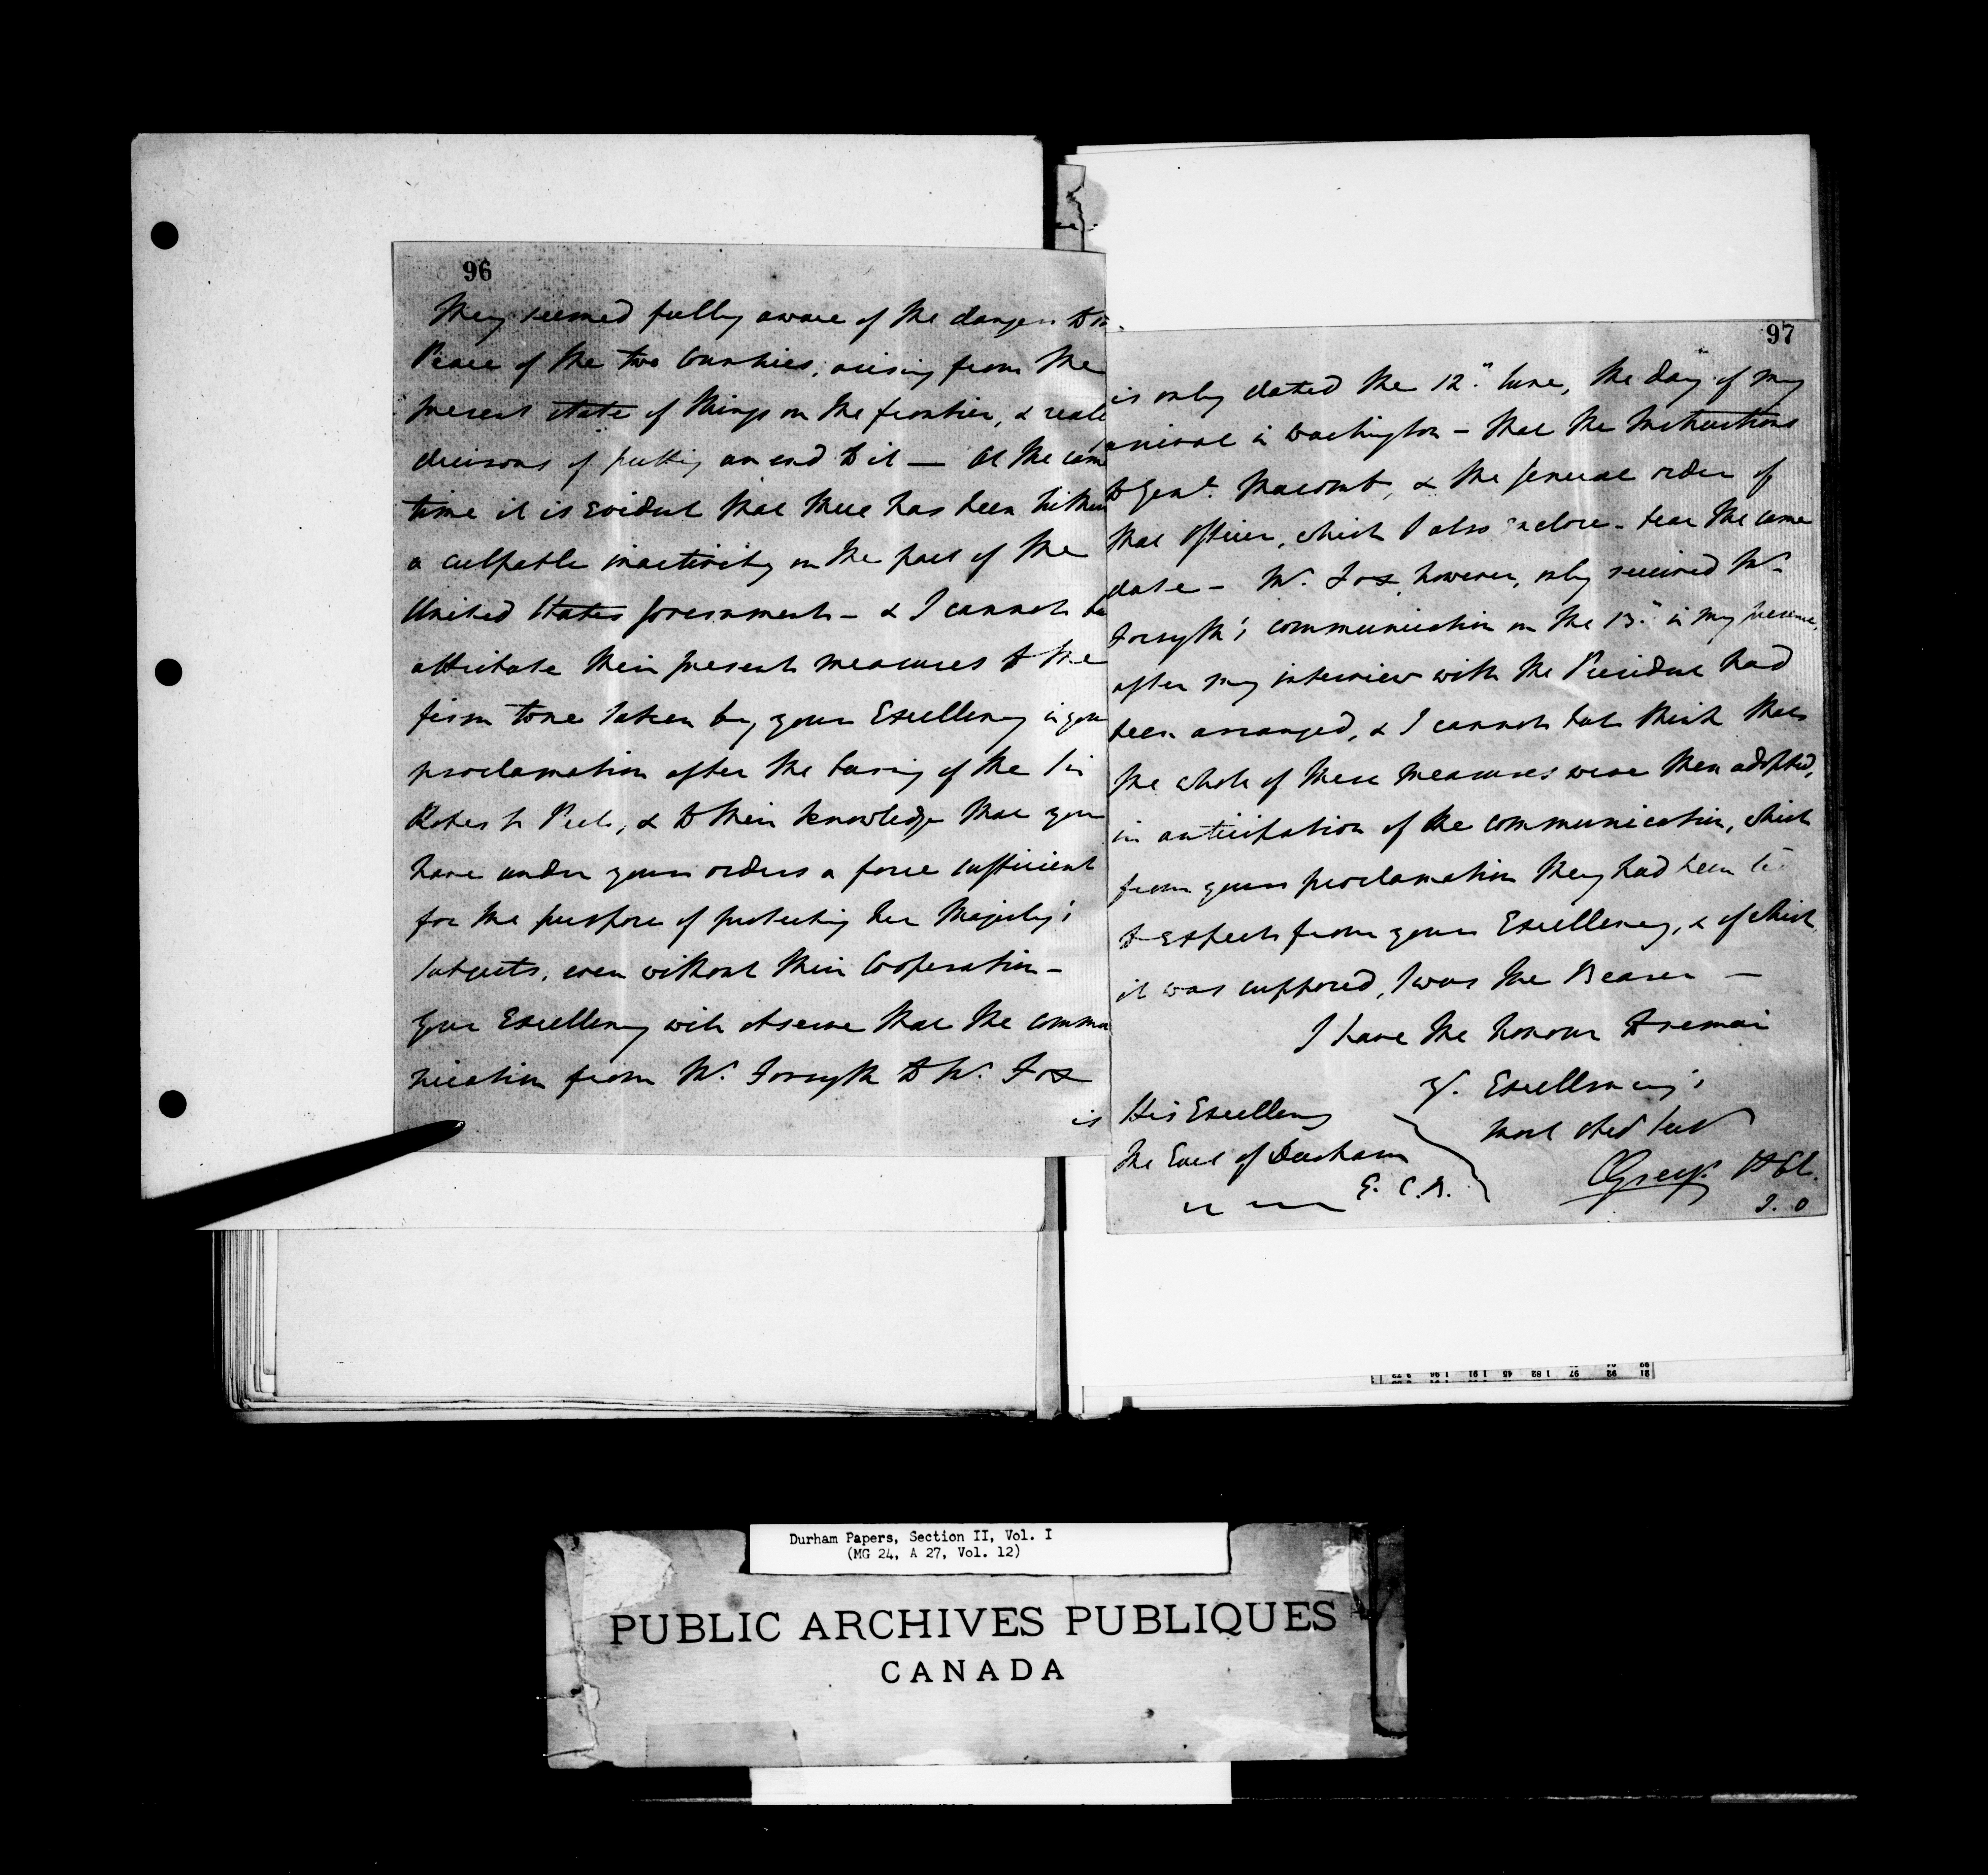 96
They seemed fully aware of the dangers to the
Peace of the two Countries, arising from the
present state of things on the frontier, & reall
desirous of putting an end to it — At the same
time it is Evident that there has been hither
a culpable inactivity on the part of the
United States Government – & I cannot bu
attribute their present measures to the
firm tone taken by your Excellency in your
proclamation after the burning of the Sir
Robert Peel, & to their knowledge that you
have under your orders a force sufficient
for the purpose of protecting Her Majesty's
Subjects, even without their Cooperation –
Your Excellency will observe that the commu
nication from Mr. Forsyth to Mr. Fox
is
97
is only dated the 12th June, the day of my
arrival in Washington – that the Instructions
to Genl. Macomb, & the General order of
that Officer, which I also enclose – bear the same
date – Mr. Fox, however, only received Mr.
Forsyth's communication on the 13th in my presence,
after my interview with the President had
been arranged, & I cannot but think that
the whole of these measures were then adopted,
in anticipation of the communication, which
from your proclamation they had been
to expect from your Excellency, & of which
it was supposed, I was the Bearer —
I have the honour to remain
Yr. Excellency's
most obed Servt
CGrey. Lt Col.
His Excellency
The Earl of Durham
G. C. B.
Durham Papers, Section II, Vol. I
(MG 24, A 27, Vol. 12)
PUBLIC ARCHIVES PUBLIQUES
CANADA